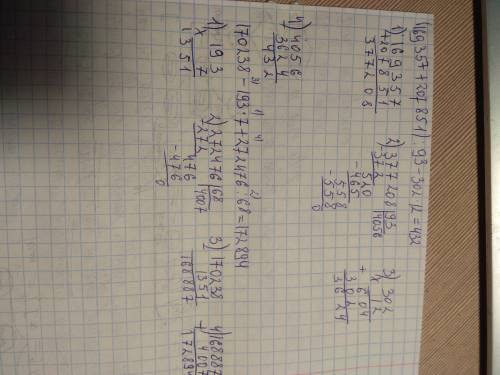 (169357+207851):93-302·12=432
1) 169357
+207851
377208
2) 377208|93
372 4056
520
-465
558
-558
0
3) 302
× 12
+ 604
302
3624
4) 4056
3624
432
3) 1) 4) 2)
170238-193·7+272476:68=172894
1) 193
× 7
1351
2) 272476|68
272 4007
476
-476
0
3) 170238
1351
168887
4) 168887
+ 4007
172894